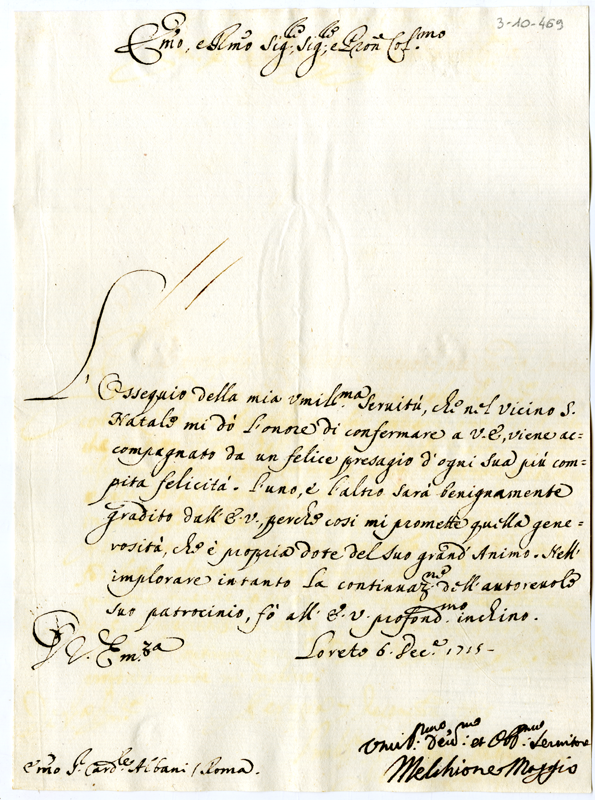 3-10-469
Emo, e Rmo Sig.re, Sig.re, e Pron Col.mo
L'Ossequio della mia vmilis.ma Seruitù, che nel vicino S.
Natale mi dò l'onore di confermare a V.E., viene ac=
compagnato da un felice presagio d'ogni sua più com=
pita felicità. L'uno, e l'altro sarà benignamente
gradito dall'E.V., perche così mi promette quella gene=
rosità, che è propria dote del suo grand'Animo. Nell'
implorare intanto la continuaz.ne dell'autoreuole
suo patrocinio, fò all'E.V. profond.mo inchino.
Di V. Em.za Loreto 6. Dec.e 1715-
Vmil.mo Deu.mo et Obb.mo Seruitore
Emo Sr. Card.le Albani / Roma. Melchiorre Maggio